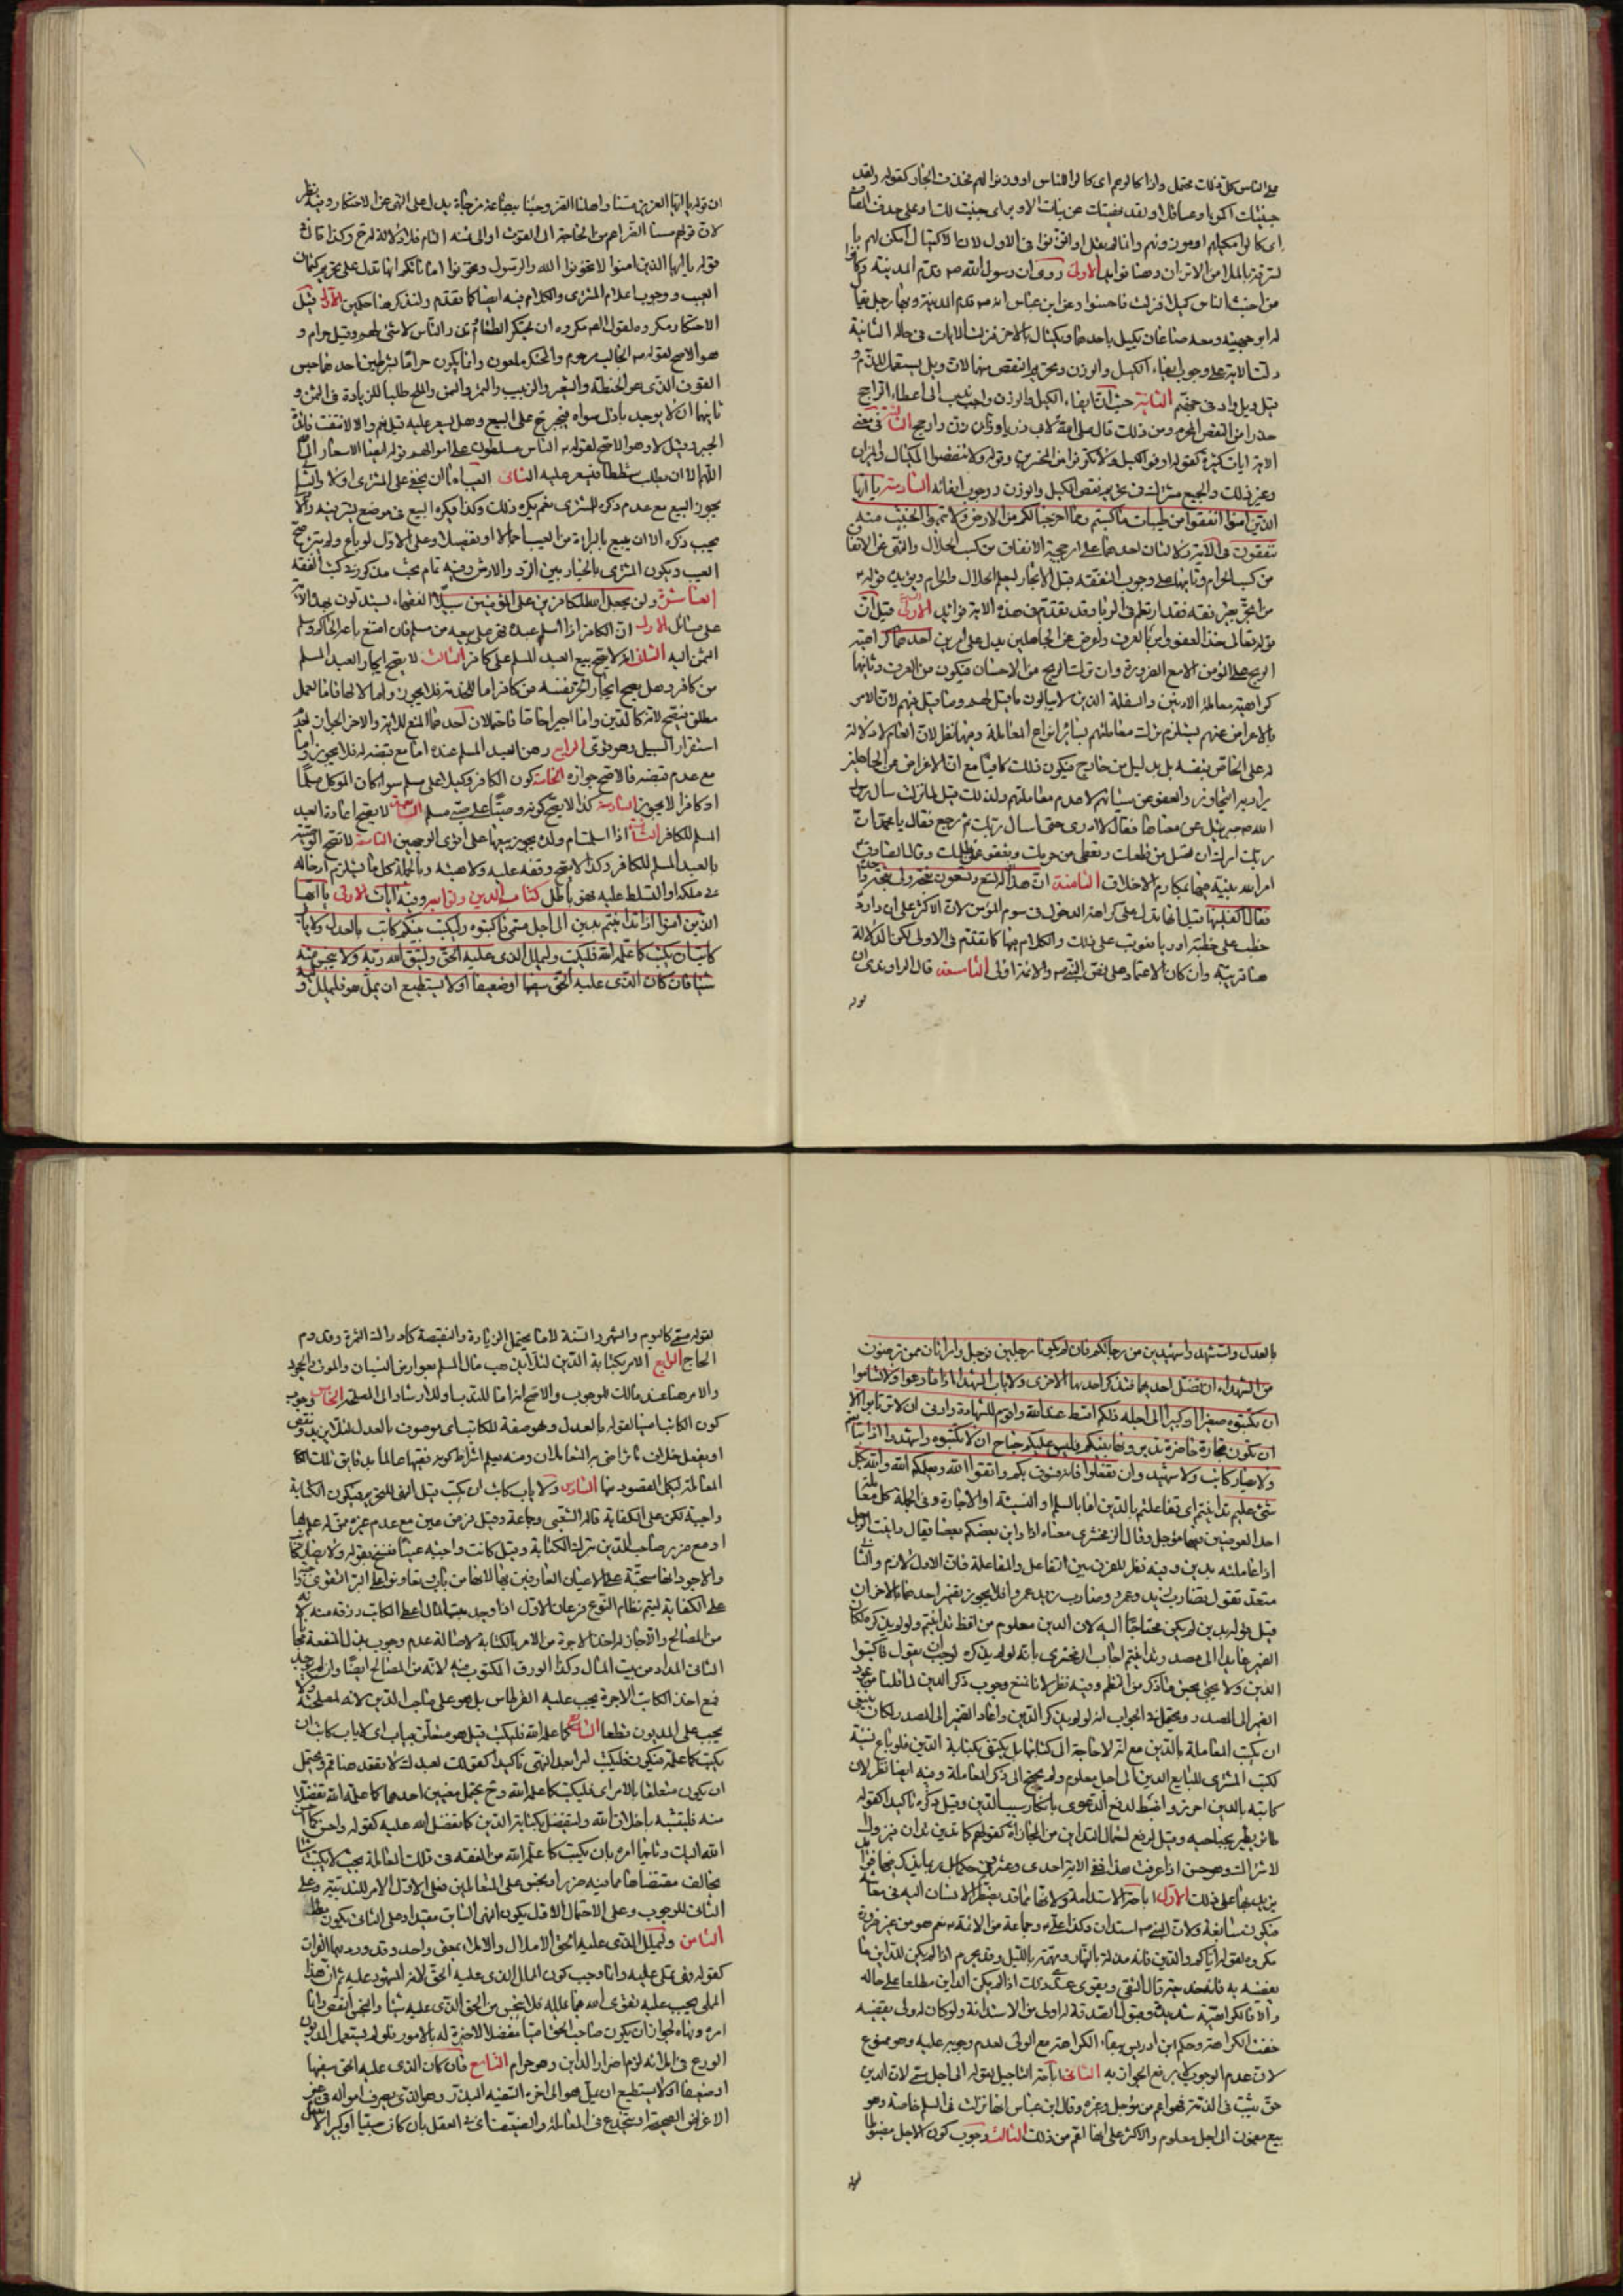 على الناس كل ذلك محتمل واذا كالوهم اى كالوا للناس اووزنوا لهم فحذف الجار كقوله ولقد
جنيتك اكمؤا وعساقلا ولقد نهيتك عن بنات الاوبر اى جنيت لك او على حذف المضاف
اى كالوا مكيلهم او موزونهم وانما لم يقل او اتزنوا فى الاول لان الاكتيال امكن لهم
من اخبث الناس كيلا فنزلت فاحسنوا وعن ابن عباس انه ص قدم المدينة وبها رجل يقال
له ابو جهينة ومعه صاعان يكيل باحدهما ويكتال بالاخر فنزلت الايات
دلت الاية على وجوب ايفاء الكيل والوزن وتحريم النقص منهما
الثانية حيث ان ايفاء الكيل والوزن واجب
الاية ايات كثيرة كقوله اوفوا الكيل ولا تكونوا من المخسرين وقوله ولا تنقصوا المكيال والميزان
وغير ذلك والجميع مشترك فى تحريم نقص الكيل والوزن ووجوب ايفائه السادسة يا ايها
الذين امنوا انفقوا من طيبات ما كسبتم ومما اخرجنا لكم من الارض ولا تيمموا الخبيث منه
تنفقون فى الاية دلالتان احدهما على ارجحية الانفاق من كسب الحلال والنهى عن الانفاق
من كسب الحرام وثانيهما على وجوب التفقه قبل الاتجار ليعلم الحلال والحرام ويؤيده قوله
من اتجر بغير فقه فقد ارتطم فى الربا وقد تقدم فى هذه الاية فوائد الاولى قيل ان
قوله تعالى خذ العفو وامر بالعرف واعرض عن الجاهلين يدل على امرين احدهما كراهية
الربح على المؤمن الا مع الضرورة وان ترك الربح من الاحسان فيكون من العرف وثانيهما
كراهية معاملة الادنين والسفلة الذين لا يبالون ما قيل لهم وما قيل فيهم لان الامر
بالاعراض عنهم يستلزم ترك معاملتهم بسائر انواع المعاملة وفيهما نظر لان العام لا دلالة
له على الخاص بنفسه بل بدليل من خارج فيكون ذلك كافيا مع ان الاعراض عن الجاهلين
يراد به التجاوز والعفو عن سيئاتهم لا عدم معاملتهم ولذلك قيل لما نزلت سال رسول
الله ص جبرئيل عن معناها فقال لا ادرى حتى اسال ربك ثم رجع فقال يا محمد ان
ربك امرك ان تصل من قطعك وتعطى من حرمك وتعفو عمن ظلمك وقال الصادق
امر الله نبيه فيها بمكارم الاخلاق الثامنة ان هذا اخى له تسع وتسعون نعجة ولى نعجة واحدة
فقال اكفلنيها قيل انها تدل على كراهة الدخول فى سوم المؤمن لان الاكثر على ان داود
خطب على خطبة اوريا فعوتب على ذلك والكلام فيها كما تقدم فى الاولى لكن الدلالة
هنا قريبة وان كان الاعتماد على نص النبى ص والائمة اولى التاسعة قال الراوندى ان
قوله
ان قوله يا ايها العزيز مسنا واهلنا الضر وجئنا ببضاعة مزجاة يدل على النهى عن الاحتكار وفيه نظر
لان قولهم مسنا الضر اعم من الحاجة الى القوت او الى ثمنه والعام فلا دلالة له ح وكذا قال فى
قوله يا ايها الذين امنوا لا تخونوا الله والرسول وتخونوا اماناتكم انها تدل على تحريم كتمان
العيب ووجوب اعلام المشترى والكلام فيه ايضا كما تقدم ولنذكر هنا حكمين الاول قيل
الاحتكار مكروه لقول الص مكروه ان تحتكر الطعام وتذر الناس لا شئ لهم وقيل حرام و
هو الاصح لقوله ص الجالب مرحوم والمحتكر ملعون وانما يكون حراما بشرطين احدهما حبس
القوت الذى هو الحنطة والشعير والزبيب والتمر والسمن والملح طلبا للزيادة فى الثمن و
ثانيهما ان لا يوجد باذل سواه فيجبر ح على البيع وهل يسعر عليه قيل نعم والا لانتفت فائدة
الجبر وقيل لا وهو الاصح لقوله ص الناس مسلطون على اموالهم
الثانى العيب اما ان يخفى على المشترى او لا والثانى
يجوز البيع مع عدم ذكره للمشترى نعم يكره ذلك وكذا يكره البيع فى موضع يستر فيه
يجب ذكره الا ان يبيع بالبراءة من العيب اجمالا او تفصيلا وعلى الاول لو باع ولم يتبرء صح
العيب ويكون المشترى بالخيار بين الرد والارش وفيه تمام بحث مذكور فى كتب الفقه
العاشرة ولن يجعل الله للكافرين على المؤمنين سبيلا الفقهاء يستدلون بهذه الاية
على مسائل الاولى ان الكافر اذا اسلم عبده قهر على بيعه من مسلم فان امتنع باعه الحاكم وسلم
الثمن اليه الثانى انه لا يصح بيع العبد المسلم على كافر الثالث لا يصح ايجار العبد المسلم
من كافر وهل يصح ايجار الحر نفسه من كافر اما للخدمة فلا يجوز واما لا لها فاما لعمل
مطلق فيصح لانه كالدين واما اجيرا خاصا فاحتمالان احدهما المنع للاية والاخر الجواز لعدم
استقرار السبيل وهو قوى الرابع رهن العبد المسلم عنده اما مع قبضه له فلا يجوز واما
مع عدم قبضه فالاصح جوازه الخامس كون الكافر وكيلا على مسلم سواء كان الموكل مسلما
او كافرا لا يجوز السادسة كذا لا يصح كونه وصيا على صبى مسلم السابعة لا يصح اعارة العبد
المسلم للكافر الثامنة اذا اسلمت ام ولده يجوز بيعها على اقوى الوجهين التاسعة لا تصح الوصية
بالعبد المسلم للكافر وكذا لا يصح وقفه عليه ولا هبته وبالجملة كل ما يستلزم ادخاله
فى ملكه او التسلط عليه فهو باطل كتاب الدين وتوابعه وفيه آيات الاولى يا ايها
الذين امنوا اذا تداينتم بدين الى اجل مسمى فاكتبوه وليكتب بينكم كاتب بالعدل ولا ياب
كاتب ان يكتب كما علمه الله فليكتب وليملل الذى عليه الحق وليتق الله ربه ولا يبخس منه
شيئا فان كان الذى عليه الحق سفيها او ضعيفا او لا يستطيع ان يمل هو فليملل وليه
بالعدل واستشهدوا شهيدين من رجالكم فان لم يكونا رجلين فرجل وامراتان ممن ترضون
من الشهداء ان تضل احديهما فتذكر احديهما الاخرى ولا ياب الشهداء اذا ما دعوا ولا تساموا
ان تكتبوه صغيرا او كبيرا الى اجله ذلكم اقسط عند الله واقوم للشهادة وادنى ان لا ترتابوا الا
ان تكون تجارة حاضرة تديرونها بينكم فليس عليكم جناح ان لا تكتبوها واشهدوا اذا تبايعتم
ولا يضار كاتب ولا شهيد وان تفعلوا فانه فسوق بكم واتقوا الله ويعلمكم الله والله بكل
شئ عليم تداينتم اى تفاعلتم بالدين اما بالسلم او النسيئة او الاجارة وفى الجملة كل معاملة
احد العوضين فيها مؤجل وقال الزمخشرى معناه اذا داين بعضكم بعضا يقال داينت الرجل
اذا عاملته بدين وفيه نظر للفرق بين التفاعل والمفاعلة فان الاول لازم والثانى
متعد تقول تضارب زيد وعمرو وضارب زيد عمروا فلا يجوز تفسير احدهما بالاخر ان
قيل قوله بدين لم يكن محتاجا اليه لان الدين معلوم من لفظ تداينتم ولو لم يذكره لكان
الضمير عائدا الى مصدر تداينتم اجاب الزمخشرى بانه لو لم يذكره لوجب ان يقول فاكتبوا
الدين ولا يخفى حسن ما ذكر من النظم وفيه نظر لانا نمنع وجوب ذكر الدين لما قلنا من عود
الضمير الى المصدر ويحتمل فى الجواب انه لو لم يذكر الدين واعاد الضمير الى المصدر لكان ينبغى
ان يكتب المعاملة بالدين مع انه لا حاجة الى كتابتها بل يكتفى بكتابة الدين فلو باع نسيئة
لكتب المشترى للبايع الدين الى اجل معلوم ولم يحتج الى ذكر المعاملة وفيه ايضا نظر لان
كاتبه بالدين احرز واضبط لدفع الدعوى بانكار سبب الدين وقيل ذكره تاكيدا كقوله
طائر يطير بجناحيه وقيل لرفع احتمال التداين من المجازاة كقولهم كما تدين تدان فيزول
الاشتراك وهو حسن اذا عرفت هذا ففى الاية احدى وعشرون حكما
الاول اباحة الاستدامة ولانها مما قد يضطر الانسان اليه فى معاشه
فيكون سائغة ولان النبى ص استدان وكذا على ع وجماعة من الائمة ع نعم هو من غير ضرورة
مكروه لقوله اياكم والدين فانه مذلة بالنهار ومهمة بالليل وقد يحرم اذا لم يكن للمداين ما
يقضيه به
خفت الكراهة وحكم ابن ادريس ببقاء الكراهة مع الولى لعدم وجوبه عليه وهو ممنوع
لان عدم الوجوب لا يرفع الجواز به الثانى اباحة التاجيل لقوله الى اجل مسمى لان الدين
حق يثبت فى الذمة فهو اعم من مؤجل وغيره وقال ابن عباس انها نزلت فى السلم خاصة وهو
بيع مضمون الى اجل معلوم والاكثر على انها اعم من ذلك الثالث وجوب كون الاجل مضبوطا
لقوله
لقوله مسمى كاليوم والشهر والسنة لا ما يحتمل الزيادة والنقيصة كادراك الثمرة وقدوم
الحاج الرابع الامر بكتابة الدين لئلا يذهب مال المسلم بعوارض النسيان والموت والجحود
والامر هنا عند مالك للوجوب والاصح انه اما للندب او للارشاد الى المصلحة الخامس وجوب
كون الكاتب امينا لقوله بالعدل وهو صفة للكاتب اى موصوف بالعدل لئلا يزيد او ينقص
او يفعل خلاف ما تراضى به المتعاملان ومنه يعلم اشتراط كونه فقيها عالما بدقايق تلك
المعاملة ليكمل المقصود منها السادس ولا ياب كاتب ان يكتب قيل النهى للتحريم فيكون الكتابة
واجبة لكن على الكفاية قاله الشعبى وجماعة وقيل فرض عين مع عدم غيره
او مع ضرر صاحب الدين بترك الكتابة وقيل كانت واجبة عينا فنسخ بقوله ولا يضار كاتب
والاجود انها مستحبة على الاعيان العارفين بها لانها من باب وتعاونوا على البر والتقوى
على الكفاية ليتم نظام النوع فرعان الاول اذا وجد بيت المال اعطى الكاتب رزقه منه لانه
من المصالح والا جاز له اخذ الاجرة من الامر بالكتابة لاصالة عدم وجوب بذل المنفعة مجانا
الثانى المداد من بيت المال وكذا الورق المكتوب فيه لانه من المصالح ايضا وان لم يوجد
فمع اخذ الكاتب الاجرة يجب عليه القرطاس بل هو على صاحب الدين لانه لمصلحته
يجب على المديون قطعا السابع كما علمه الله فليكتب قيل هو متعلق بياب اى لا ياب كاتب ان
يكتب كما علمه فيكون فليكتب امرا بعد النهى تاكيدا
ان يكون متعلقا بالامر اى فليكتب كما علمه الله وح يحتمل معنيين احدهما كما علمه الله تفضلا
منه فليتشبه باخلاق الله وليتفضل بكتابة الدين كما تفضل الله عليه كقوله واحسن كما احسن
الله اليك وثانيهما امره بان يكتب كما علمه الله من الفقه فى تلك المعاملة بحيث لا يكتب شيئا
يخالف مقتضاها مما فيه ضرر او بخس على المتعاملين فعلى الاول الامر للندبية وعلى
الثانى للوجوب وعلى الاحتمال الاول يكون النهى السابق مقيدا وعلى الثانى يكون مطلقا
الثامن وليملل الذى عليه الحق الاملال والاملاء بمعنى واحد وقد ورد بهما القران
كقوله فهى تملى عليه وانما وجب كون المملل الذى عليه الحق لانه المشهود عليه ثم ان هذا
المملى يجب عليه تقوى الله فيما يملله فلا يبخس من الحق الذى عليه شيئا والبخس النقص وانما
امره ونهاه لجواز ان يكون صاحب الحق
الورع فى املائه لزم اضرار الداين وهو حرام التاسع فان كان الذى عليه الحق سفيها
او ضعيفا او لا يستطيع ان يمل هو الى اخره السفيه المبذر وهو الذى يصرف امواله فى غير
الاغراض الصحيحة او ينخدع فى المعاملة والضعيف اى فى العقل بان كان صبيا او كبيرا لا عقل